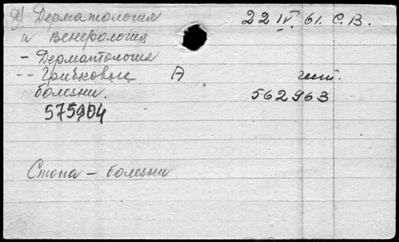 Д) Дерматология 22 IV. 61. С.В.
и венерология
- Дерматология
-- Грибковые А чит.
болезни. 562963
575904
Стопа - болезни